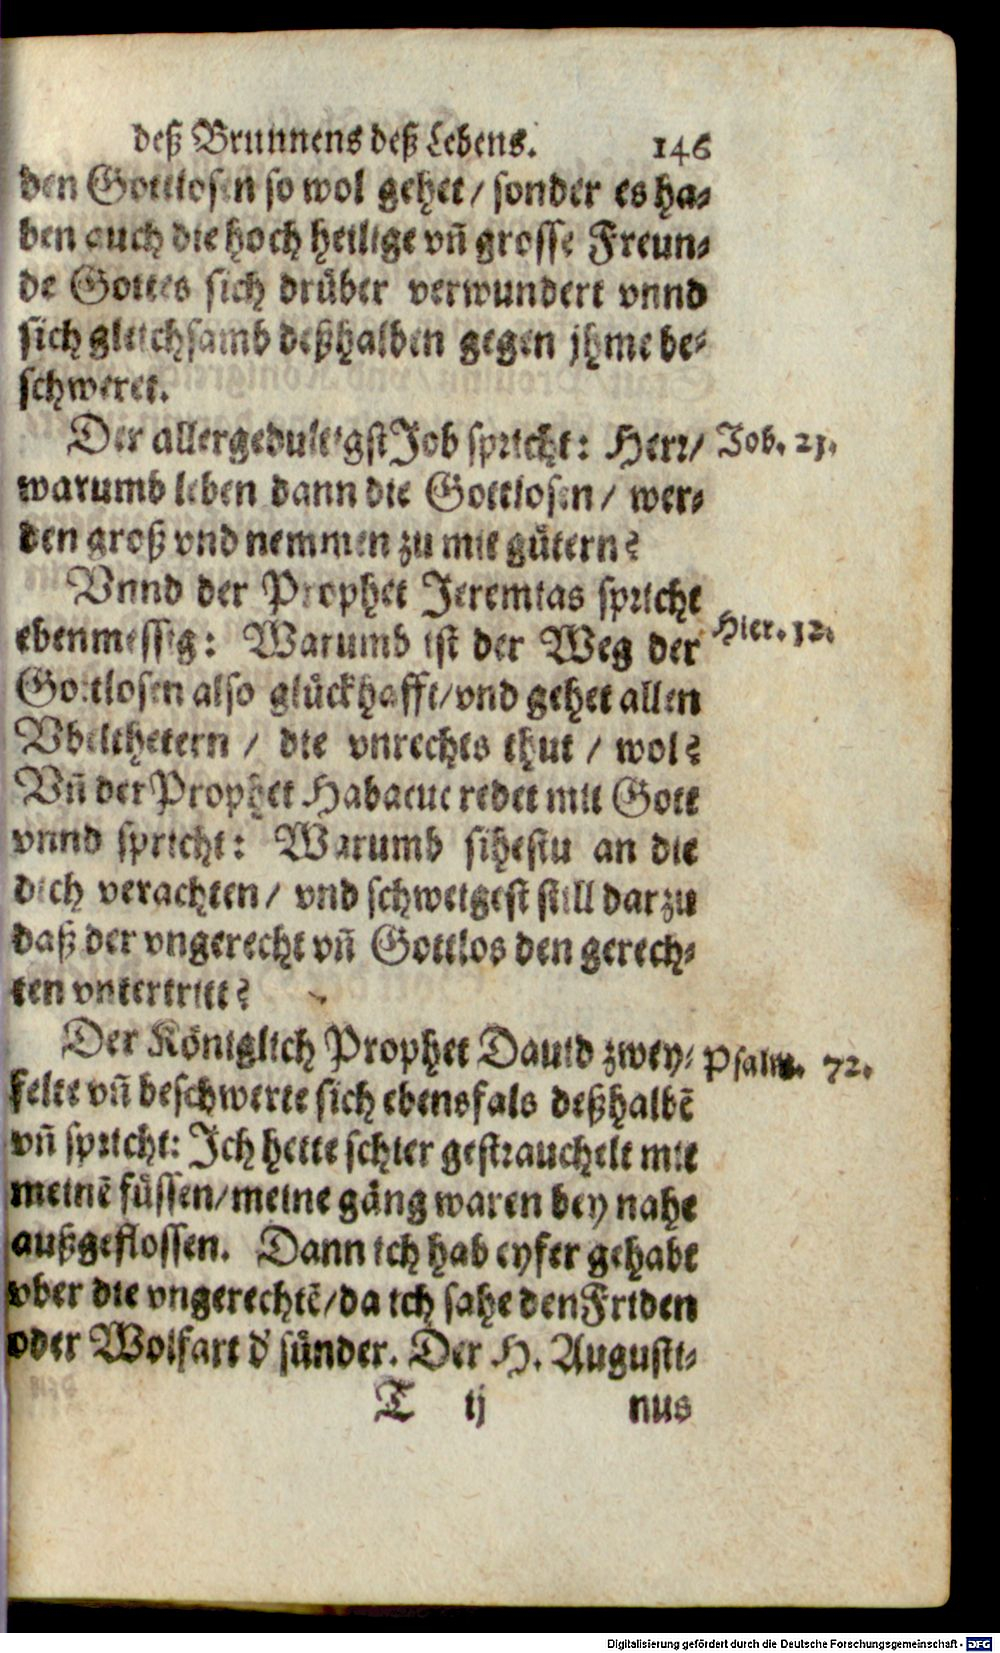 deß Brunnens deß Lebens. 146
den Gottlosen so wol gehet / sonder es ha-
ben auch die hoch heilige vñ grosse Freun-
de Gottes sich drüber verwundert vnnd
sich gleichsamb deßhalben gegen jhme be-
schweret.
Der allergedultigst Job spricht: Herr / Job. 21.
warumb leben dann die Gottlosen / wer-
den groß vnd nemmen zu mit gütern?
Vnnd der Prophet Jeremias spricht
ebenmessig: Warumb ist der Weg der Hier. 12.
Gottlosen also glückhafft / vnd gehet allen
Vbelthetern / die vnrechts thut / wol?
Vñ der Prophet Habacuc redet mit Gott
vnnd spricht: Warumb sihestu an die
dich verachten / vnd schweigest still darzu
daß der vngerecht vñ Gottlos den gerech-
ten vntertritt?
Der Königlich Prophet Dauid zwey- Psalm. 72.
felte vñ beschwerte sich ebensfals deßhalbē
vñ spricht: Ich hette schier gestrauchelt mit
meinē füssen / meine gäng waren bey nahe
außgeflossen. Dann ich hab eyfer gehabt
vber die vngerechtē / da ich sahe den Friden
oder Wolfart d' sünder. Der H. Augusti-
T ij nus
Digitalisierung gefördert durch die Deutsche Forschungsgemeinschaft - DFG